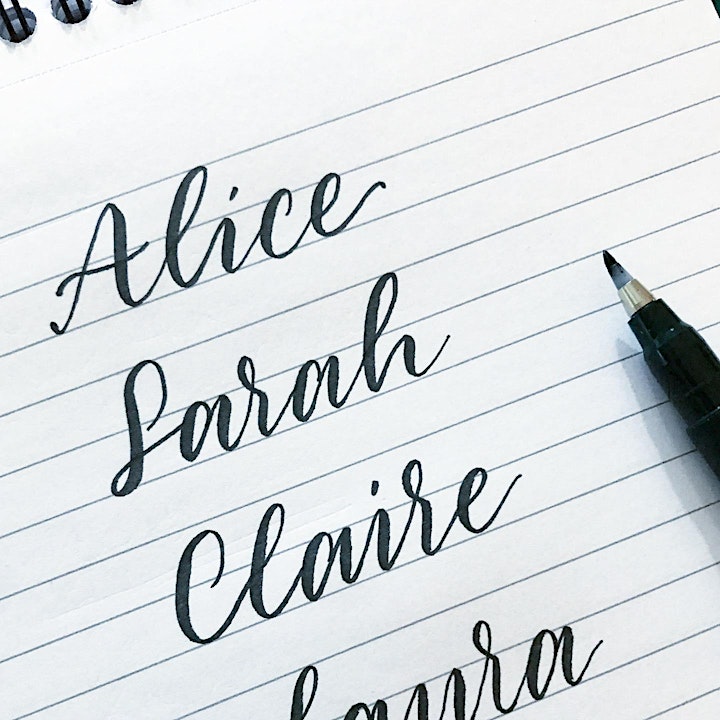 Alice
Sarah
Claire
Laura